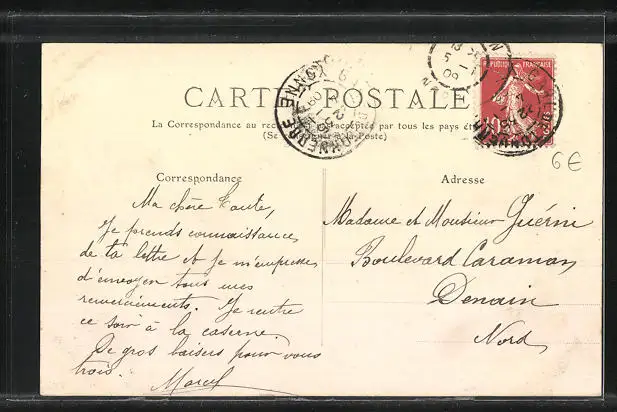 CARTE POSTALE
La Correspondance au rec acceptée par tous les pays
(Se Poste)
RÉPUBLIQUE FRANÇAISE
TONNERRE
YONNE
6€
Correspondance
Ma chère Tante,
Je prends connaissance
de ta lettre et je m'empresse
d'envoyer tous mes
remerciements. Je rentre
ce soir à la caserne
De gros baisers pour vous
trois. Marcel
Adresse
Madame et Monsieur Guérin
Boulevard Caraman
Denain
Nord